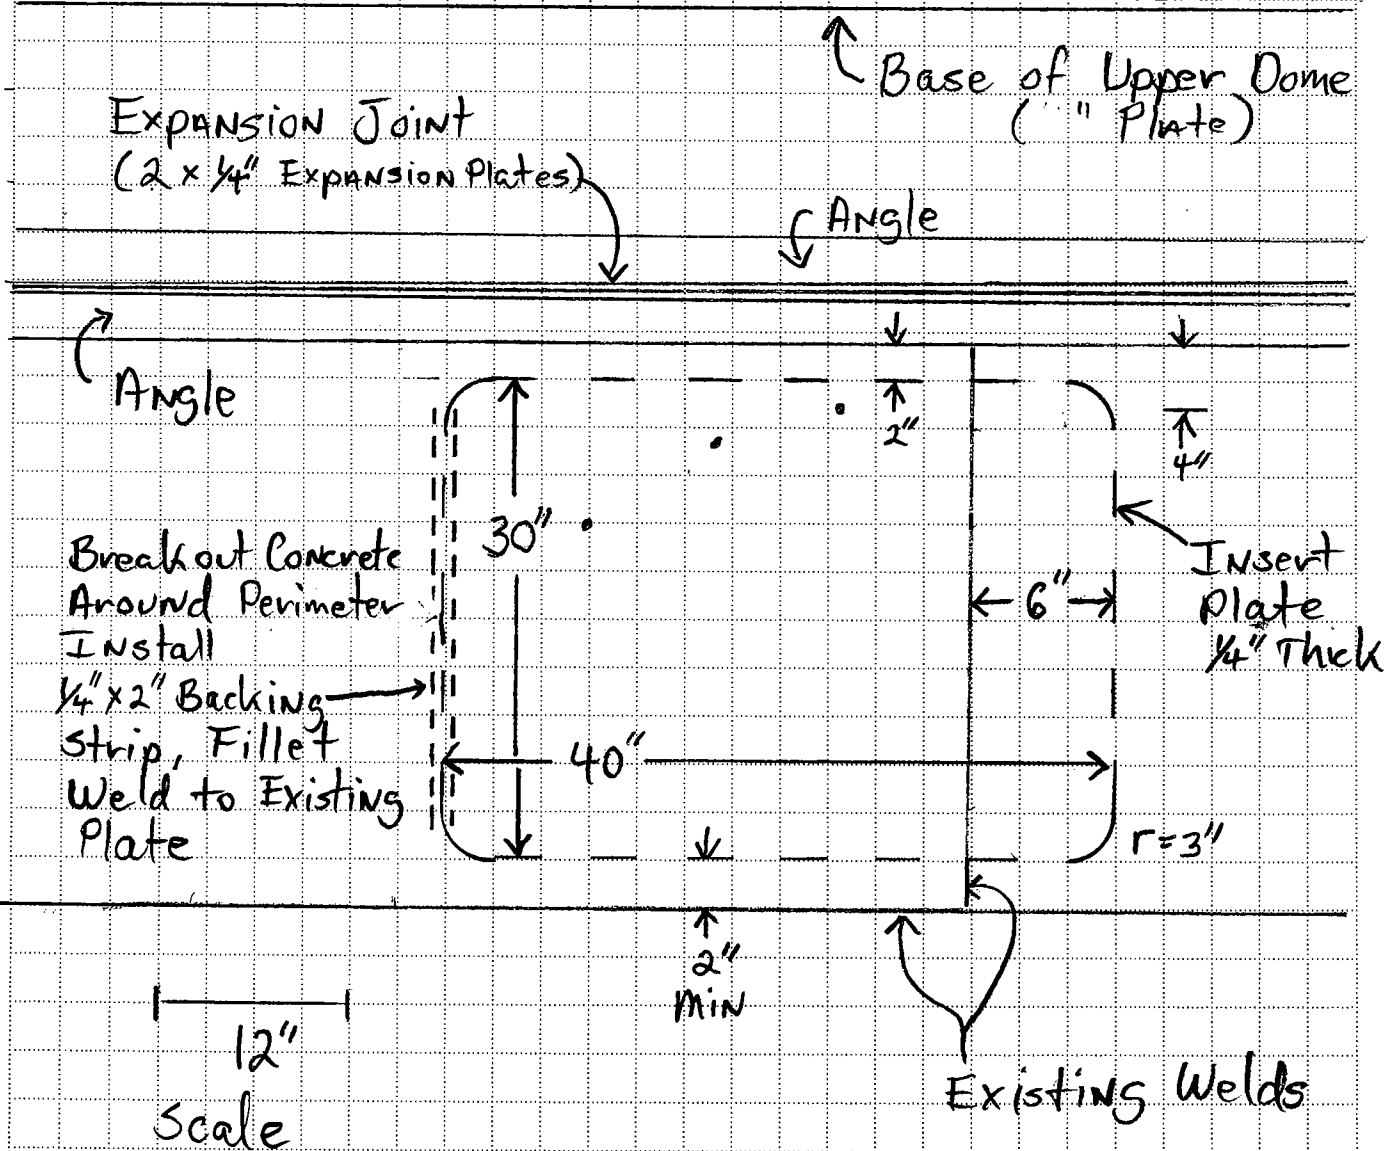 Base of Upper Dome
( " Plate)
Expansion Joint
(2 x 1/4" Expansion Plates)
Angle
Angle
2"
4"
30"
Breakout Concrete
Around Perimeter
Install
1/4" x 2" Backing
Strip, Fillet
Weld to Existing
Plate
6"
Insert
Plate
1/4" Thick
40"
r=3"
2"
Min
12"
Scale
Existing Welds